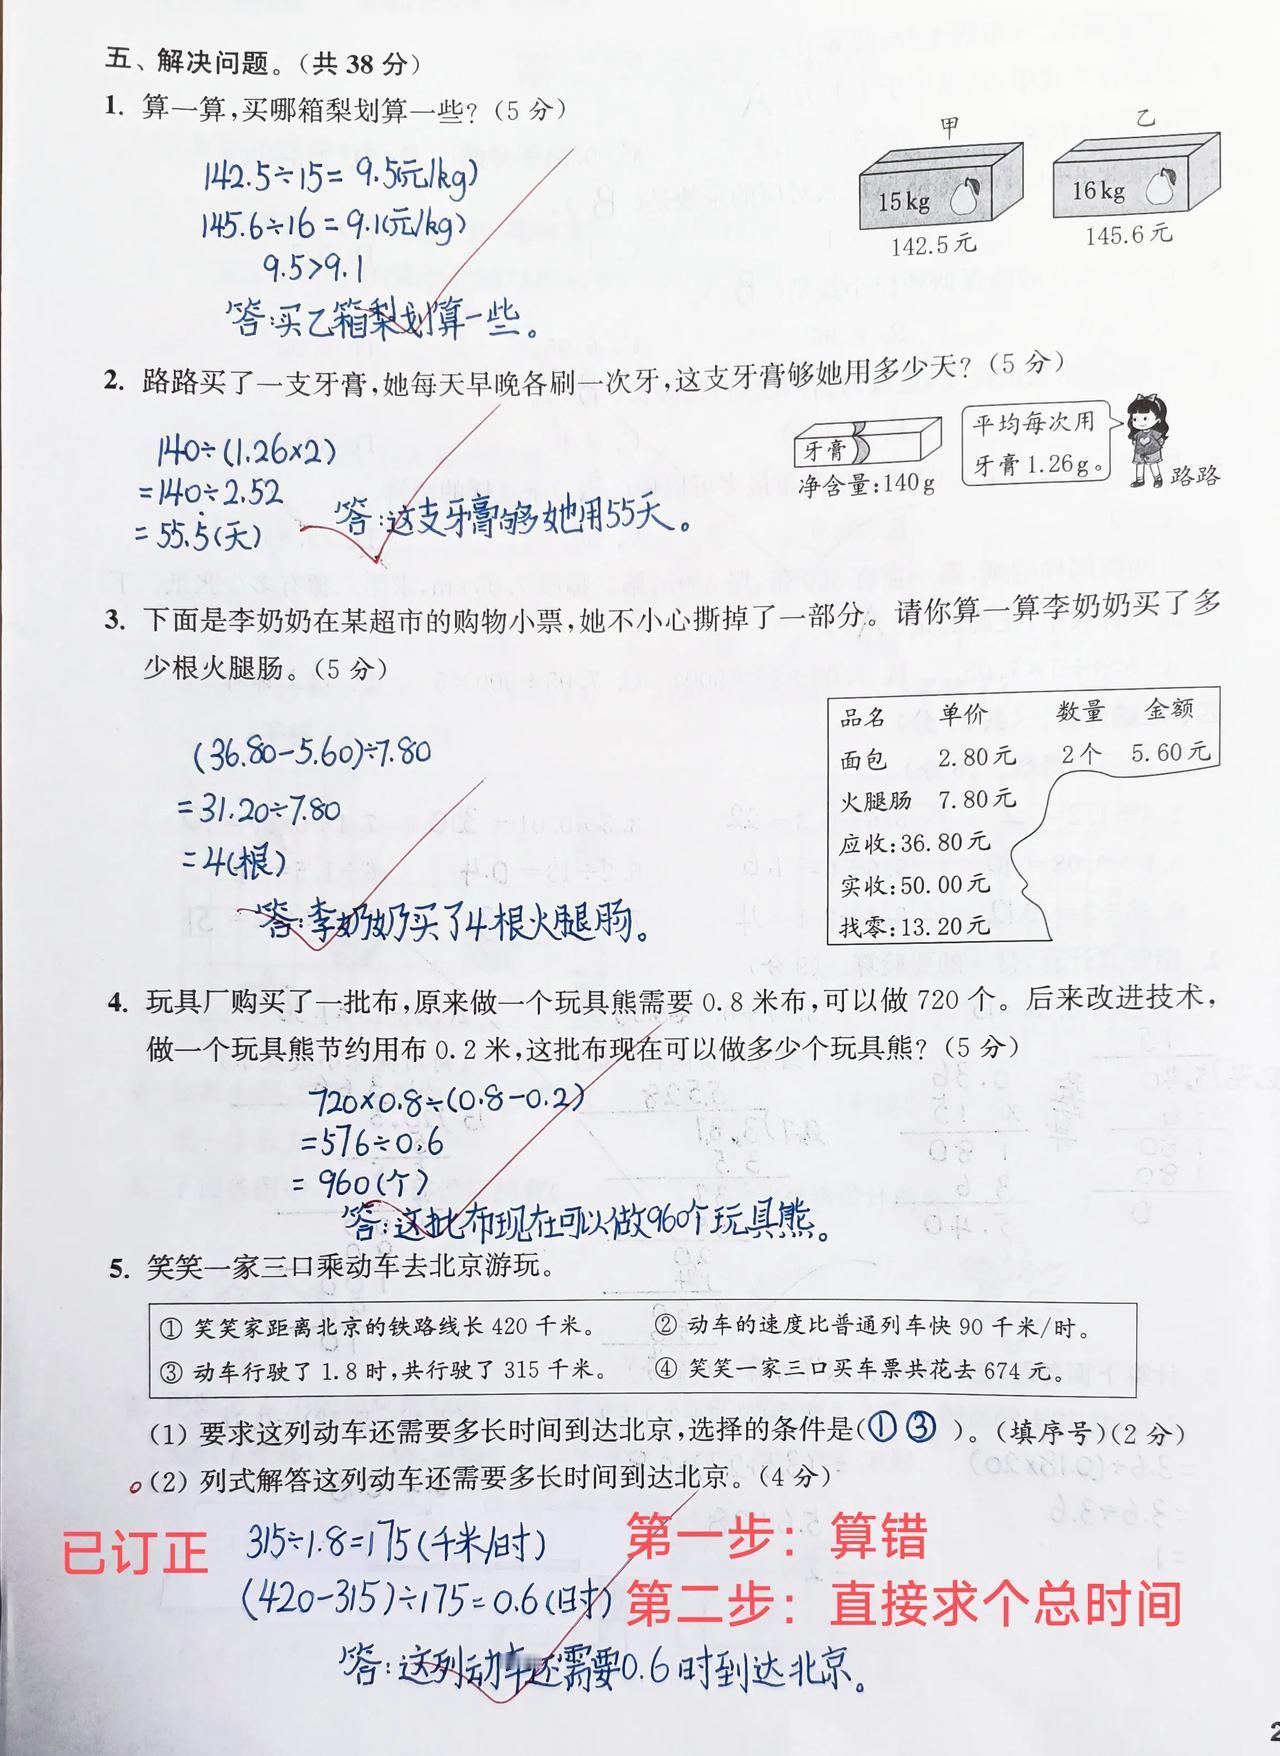 五、解决问题。(共 38 分)
1. 算一算,买哪箱梨划算一些?(5 分)
甲
乙
15kg
16kg
142.5元
145.6元
142.5÷15=9.5(元/kg)
145.6÷16=9.1(元/kg)
9.5>9.1
答:买乙箱梨划算一些。
2. 路路买了一支牙膏,她每天早晚各刷一次牙,这支牙膏够她用多少天?(5 分)
牙膏
净含量:140g
平均每次用
牙膏1.26g。
路路
140÷(1.26×2)
=140÷2.52
=55.5(天)
答:这支牙膏够她用55天。
3. 下面是李奶奶在某超市的购物小票,她不小心撕掉了一部分。请你算一算李奶奶买了多
少根火腿肠。(5 分)
品名 单价 数量 金额
面包 2.80元 2个 5.60元
火腿肠 7.80元
应收:36.80元
实收:50.00元
找零:13.20元
(36.80-5.60)÷7.80
=31.20÷7.80
=4(根)
答:李奶奶买了4根火腿肠。
4. 玩具厂购买了一批布,原来做一个玩具熊需要 0.8 米布,可以做 720 个。后来改进技术,
做一个玩具熊节约用布 0.2 米,这批布现在可以做多少个玩具熊?(5 分)
720×0.8÷(0.8-0.2)
=576÷0.6
=960(个)
答:这批布现在可以做960个玩具熊。
5. 笑笑一家三口乘动车去北京游玩。
① 笑笑家距离北京的铁路线长 420 千米。 ② 动车的速度比普通列车快 90 千米/时。
③ 动车行驶了 1.8 时,共行驶了 315 千米。 ④ 笑笑一家三口买车票共花去 674 元。
(1) 要求这列动车还需要多长时间到达北京,选择的条件是(①③)。(填序号)(2 分)
(2) 列式解答这列动车还需要多长时间到达北京。(4 分)
已订正
315÷1.8=175(千米/时)
(420-315)÷175=0.6(时)
答:这列动车还需要0.6时到达北京。
第一步:算错
第二步:直接求个总时间
2